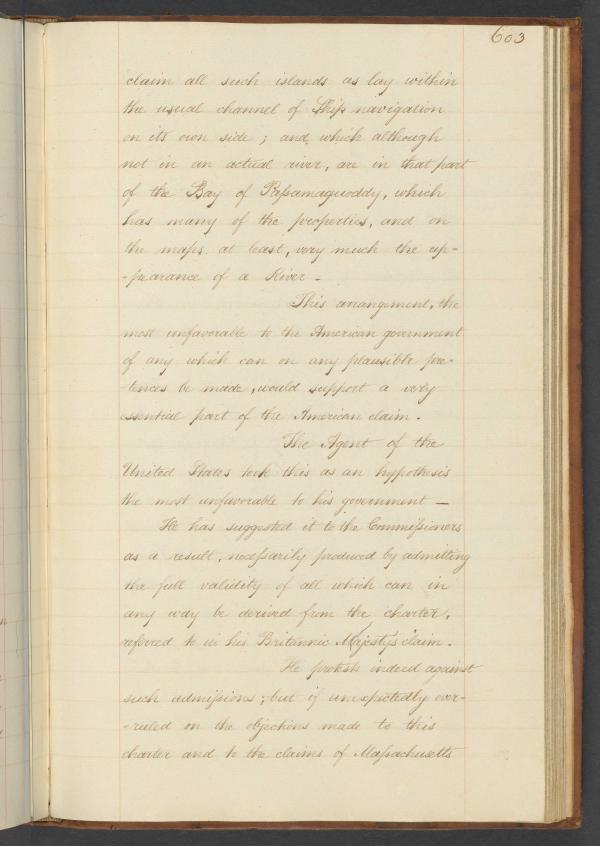 603
claim all such islands as lay within
the usual channel of Ship navigation
on its own side; and, which although
not in an actual river, are in that part
of the Bay of Passamaquoddy, which
has many of the properties, and on
the maps at least, very much the ap-
-pearance of a River -
This arrangement, the
most unfavorable to the American government
of any which can on any plausible pre-
-tences be made, would support a very
essential part of the American claim.
The Agent of the
United States took this as an hypothesis
the most unfavorable to his government —
He has suggested it to the Commissioners
as a result, necessarily produced by admitting
the full validity of all which can in
any way be derived from the charter,
referred to in his Britannic Majesty's claim.
He protests indeed against
such admissions; but if unexpectedly over-
-ruled on the objections made to this
charter and to the claims of Massachusetts